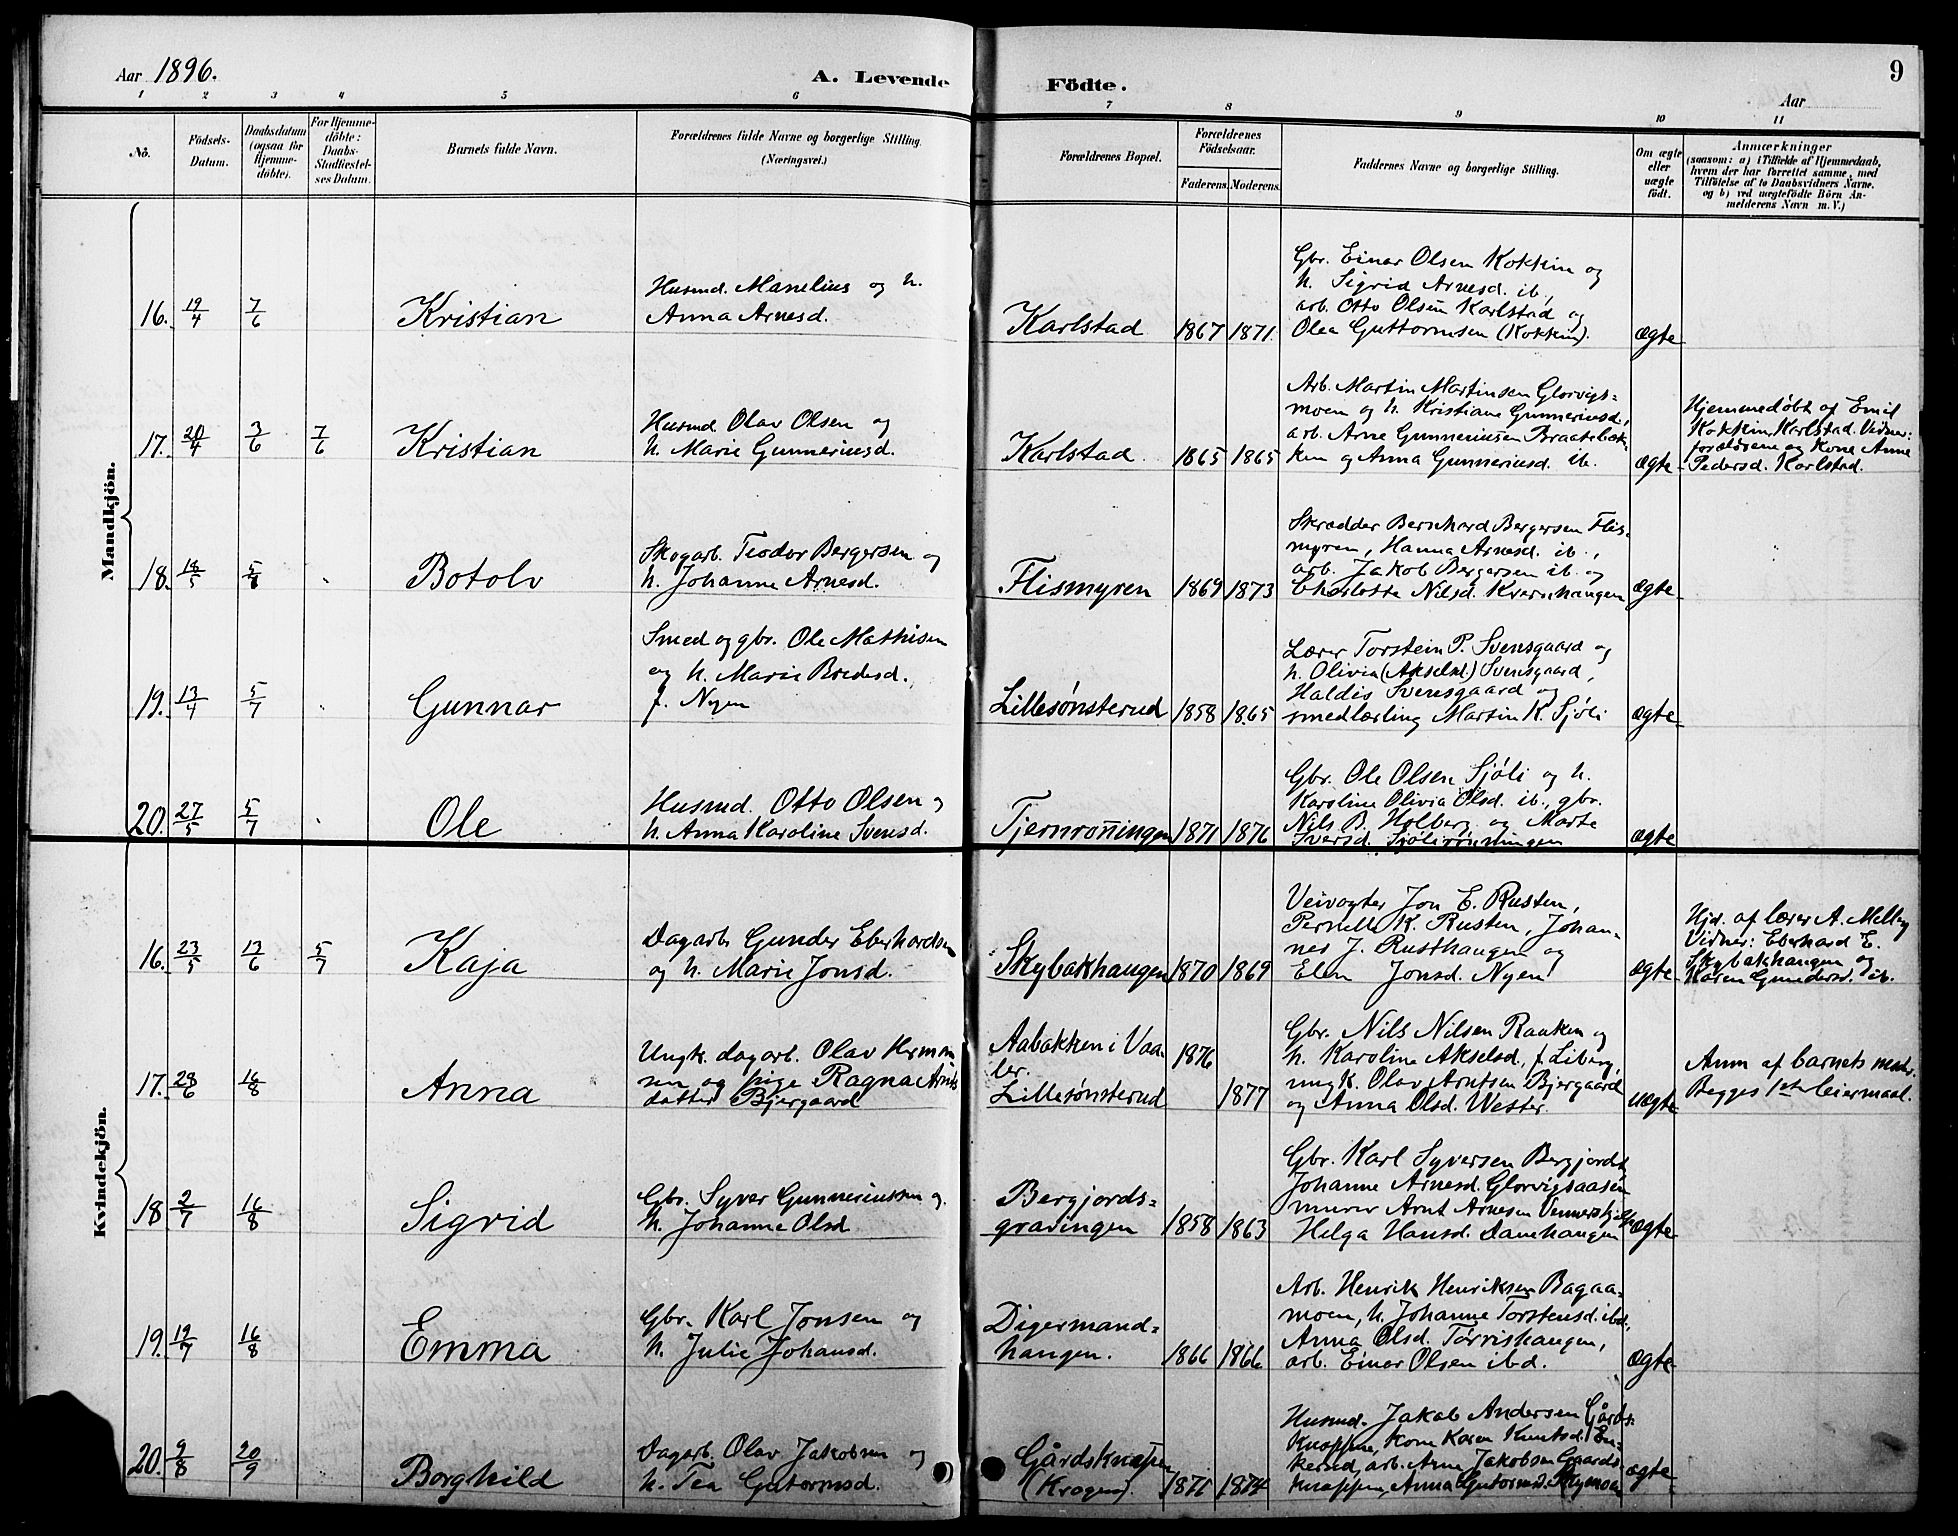 Aar 1896.
A. Levende Födte.
9
Aar
1 2 3 4 5 6 7 8 9 10 11
No.
Födsels-
Datum.
Daabsdatum
(ogsaa for
Hjemme-
döbte).
For Hjemme-
döbte:
Daabs-
Stadfæstel-
ses Datum.
Barnets fulde Navn.
Forældrenes fulde Navne og borgerlige Stilling.
(Næringsvei.)
Forældrenes Bopæl.
Forældrenes
Födselsaar.
Faderens. Moderens.
Faddernes Navne og borgerlige Stilling.
Om ægte
eller
uægte
født.
Anmærkninger
(saasom: a) i Tilfælde af Hjemmedaab,
hvem der har forrettet samme, med
Tilföielse af to Daabsvidners Navne,
og b) ved uægtefödte Börn An-
melderens Navn m. V.)
Mandkjön.
16. 19/4 7/6
Kristian
Husmd. Manelius og h.
Anna Arnesd.
Karlstad
1867 1871.
Gbr. Einar Olsen Kokkin og
h. Sigrid Arnesd. ib.,
arb. Otto Olsen Karlstad og
Olea Guttormsen (Kokkin).
ægte
17. 20/4 3/6 7/6
Kristian
Husmd Olav Olsen og
h. Marie Gunneriusd.
Karlstad.
1865 1865
Arb. Martin Martinsen Glorvigs=
moen og h. Kristiane Gunneriusd,
arb. Arne Gunneriusen Braatebak-
ken og Anna Gunneriusd. ib.
ægte
Hjemmedøbt af Emil
Kokkin, Karlstad. Vidner:
forældrene og Kone Anne
Pedersd. Karlstad.
18. 18/5 5/8
Botolv
Skogarb. Teodor Bergersen og
h. Johanne Arnesd.
Flismyren
1869 1873
Skrædder Bernhard Bergersen Flis-
myren, Hanna Arnesd. ib.,
arb. Jakob Bergersen ib. og
Charlotte Nilsd. Kværnhaugen
ægte
19. 13/4 5/7
Gunnar
Smed og gbr. Ole Mathisen
og h. Marie Bredesd.
f. Nyen
Lillesønsterud
1858 1865
Lærer Torstein P. Svensgaard og
h. Olivia (Akselsd.) Svensgaard,
Haldis Svensgaard og
smedlærling Martin K. Sjöli
ægte
20. 27/5 5/7
Ole
Husmd. Otto Olsen og
h. Anna Karoline Svensd.
Tjernrönningen
1871 1876
Gbr. Ole Olsen Sjöli og h.
Karoline Olivia Olsd. ib., gbr.
Nils B. Holberg og Marte
Iversd. Sjölirönningen
ægte
Kvindekjön.
16. 23/5 13/6 5/7
Kaja
Dagarb. Gunder Eberhardsen
og h. Marie Jonsd.
Skybakhaugen
1870 1869
Veivogter Jon E. Rusten,
Pernelle K. Rusten, Johan-
nes J. Rusthaugen og
Elen Jonsd. Nyen
ægte
Hjd. af lærer A. Melby
Vidner: Eberhard E.
Skybakhaugen og
Karen Gundersd. ib.
17. 28/6 16/8
Anna
Ungk. dagarb. Olav
og pige Ragna Arnts
datter Bjergaard
Aabakken i Vaa-
ler.
Lillesønsterud
1876
1877
Gbr. Nils Nilsen Raaken og
h. Karoline Akselsd,
ungk. Olav Arntsen Bjergaard
og Anna Olsd. Wester.
uægte
Anm af barnets moder.
Begges 1ste leiermaal.
18 2/7 16/8
Sigrid
Gbr. Syver Gunneriussen og
h. Johanne Olsd
Bergjords=
gravingen
1858 1863
Gbr. Karl Syversen Bergjordet
Johanne Arnesd. Glorvigsaasen
murer Arnt Arnesen
Helga Hansd. Danehaugen
ægte
19. 19/7 16/8
Emma
Gbr. Karl Jonsen og
h. Julie Johansd.
Digermand=
haugen.
1866 1866
Arb. Henrik Henriksen Bagaa-
moen, h. Johanne Torstensd. ibd,
Anna Olsd. Torrishaugen,
arb. Einar Olsen ibd.
ægte
20. 9/8 20/9
Borghild
Dagarb. Olav Jakobsen og
h. Tea Gutormsd.
Gårdsknappen
(Krogen).
1871 1874
Husmd. Jakob Andersen Gårds-
knappen, Kone Karen Knutsd. En-
kerud, arb. Arne Jakobsen Gaards-
knappen, Anna Gutormsd. Skymoen
ægte